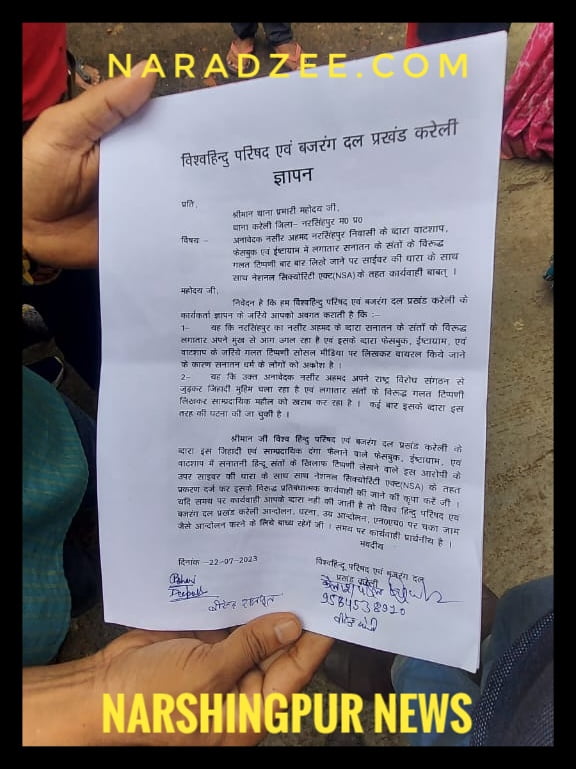 NARADZEE.COM
विश्वहिन्दु परिषद एवं बजरंग दल प्रखंड करेली
ज्ञापन
प्रति,
श्रीमान थाना प्रभारी महोदय जी,
थाना करेली जिला– नरसिंहपुर म० प्र०
विषय – अनावेदक नसीर अहमद नरसिंहपुर निवासी के व्दारा वाटशाप,
फेसबुक एवं ईष्टाग्राम में लगातार सनातन के संतों के विरूद्ध
गलत टिप्पणी बार बार लिखे जाने पर साईवर की धारा के साथ
साथ नेशनल सिक्योरिटी एक्ट(NSA) के तहत कार्यवाही बाबत् ।
महोदय जी,
निवेदन है कि हम विश्वहिन्दु परिषद एवं बजरंग दल प्रखंड करेली के
कार्यकर्ता ज्ञापन के जरिये आपको अवगत कराती है कि :–
1– यह कि नरसिंहपुर का नसीर अहमद के व्दारा सनातन के संतों के विरूद्ध
लगातार अपने मुख से आग उगल रहा है एवं इसके व्दारा फेसबुक, ईष्टाग्राम, एवं
वाटशाप के जरिये गलत टिप्पणी सोसल मीडिया पर लिखकर वायरल किये जाने
के कारण सनातन धर्म के लोगों को अकोश है ।
2– यह कि उक्त अनावेदक नसीर अहमद अपने राष्ट्र विरोध संगठन से
जुड़कर जिहादी मुहिम चला रहा है एवं लगातार संतों के विरूद्ध गलत टिप्पणी
लिखकर साम्प्रदायिक महौल को खराब कर रहा है । कई बार इसके व्दारा इस
तरह की घटना की जा चुकी है ।
श्रीमान जी विश्व हिन्दु परिषद एवं बजरंग दल प्रखंड करेली के
व्दारा इस जिहादी एवं साम्प्रदायिक दंगा फैलाने वाले फेसबुक, ईष्टाग्राम, एव
वाटशाप में सनातनी हिन्दू संतों के खिलाफ टिप्पणी लेखने वाले इस आरोपी के
उपर साइबर की धारा के साथ साथ नेशनल सिक्योरिटी एक्ट(NSA) के तहत
प्रकरण दर्ज कर इसके विरूद्ध प्रतिबंधात्मक कार्यवाही की जाने की कृपा करें जी ।
यदि समय पर कार्यवाही आपके व्दारा नहीं की जाती है तो विश्व हिन्दु परिषद एवं
बजरंग दल प्रखंड करेली आन्दोलन, धरना, उग्र आन्दोलन, एन०एच० पर चका जाम
जैसे आन्दोलन करने के लिये बाध्य रहेगें जी । समय पर कार्यवाही प्रार्थनीय है ।
भवदीय
दिनांक –22-07-2023
विश्वहिन्दु परिषद एवं बजरंग दल
प्रखंड करेली
9584538920
NARSHINGPUR NEWS